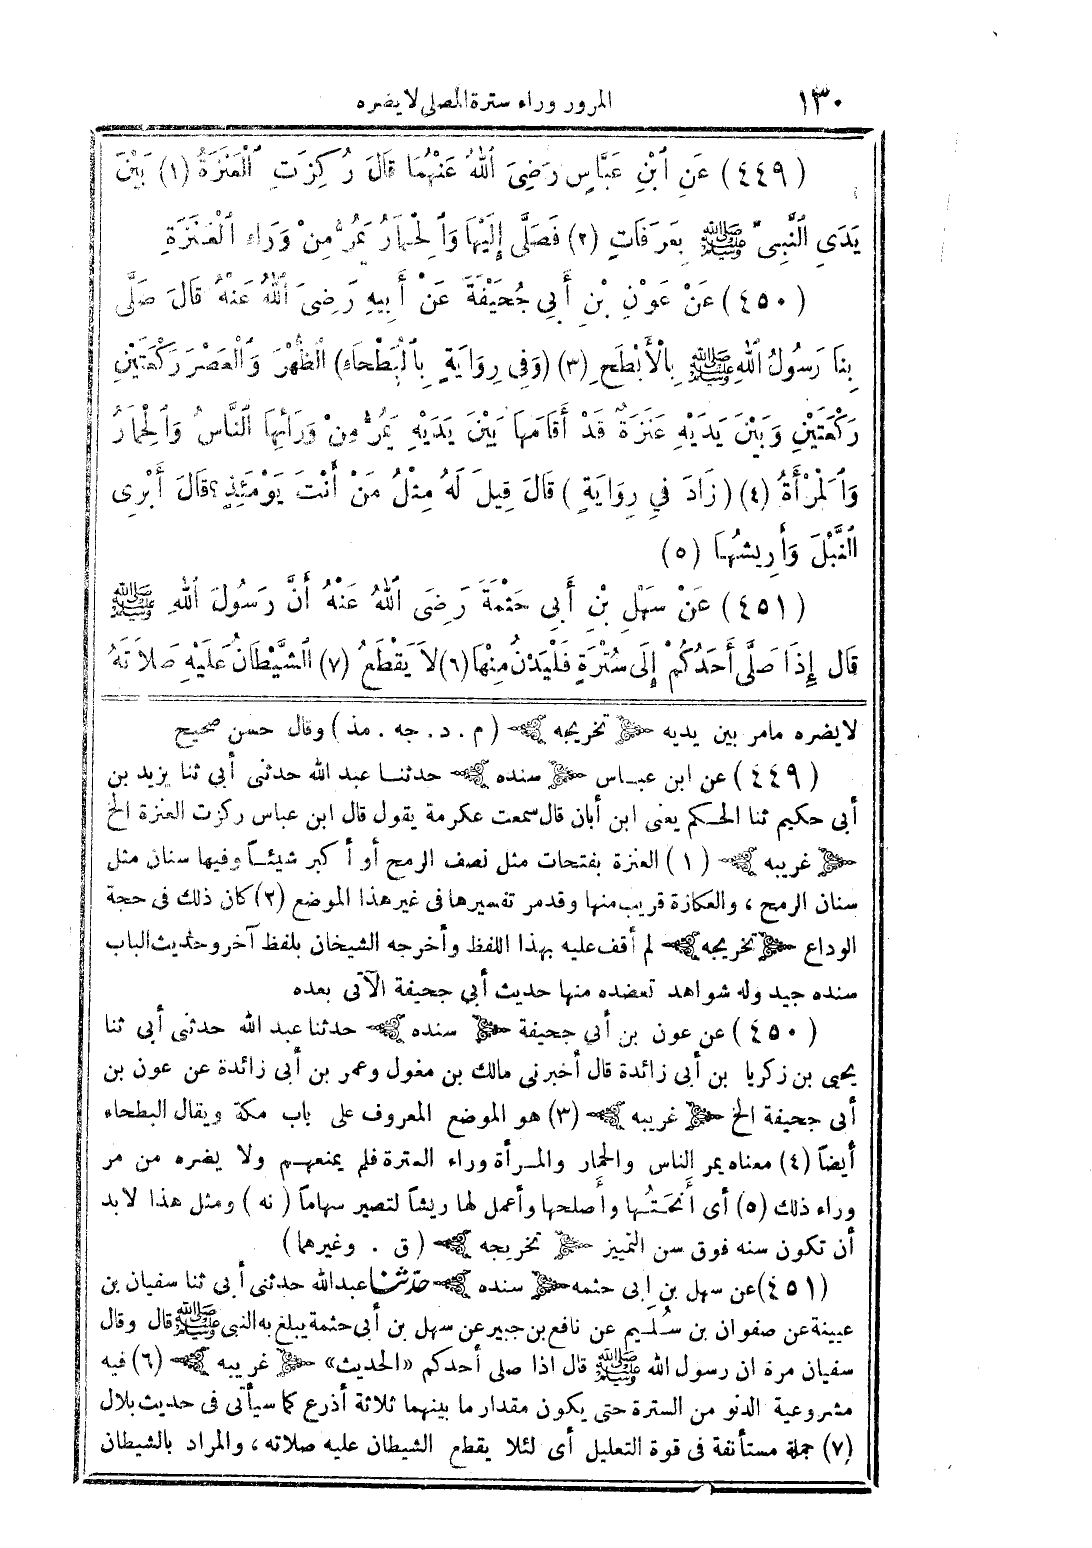 ١٣٠ المرور وراء سترة المصلى لا يضره
(٤٤٩) عَنِ ٱبْنِ عَبَّاسٍ رَضِىَ ٱللهُ عَنْهُمَا قَالَ رُكِزَتِ ٱلْعَنَزَةُ (١) بَيْنَ
يَدَىِ ٱلنَّبِىِّ ﷺ بِعَرَفَاتٍ (٢) فَصَلَّى إِلَيْهَا وَٱلْحِمَارُ يَمُرُّ مِنْ وَرَاءِ ٱلْعَنَزَةِ
(٤٥٠) عَنْ عَوْنِ بْنِ أَبِى جُحَيْفَةَ عَنْ أَبِيهِ رَضِىَ ٱللهُ عَنْهُ قَالَ صَلَّى
بِنَا رَسُولُ ٱللهِ ﷺ بِٱلْأَبْطَحِ (٣) (وَفِى رِوَايَةٍ بِٱلْبَطْحَاءِ) ٱلظُّهْرَ وَٱلْعَصْرَ رَكْعَتَيْنِ
رَكْعَتَيْنِ وَبَيْنَ يَدَيْهِ عَنَزَةٌ قَدْ أَقَامَهَا بَيْنَ يَدَيْهِ يَمُرُّ مِنْ وَرَائِهَا ٱلنَّاسُ وَٱلْحِمَارُ
وَٱلْمَرْأَةُ (٤) (زَادَ فِي رِوَايَةٍ) قَالَ قِيلَ لَهُ مِثْلُ مَنْ أَنْتَ يَوْمَئِذٍ؟ قَالَ أَبْرِى
ٱلنَّبْلَ وَأَرِيشُهَا (٥)
(٤٥١) عَنْ سَهْلِ بْنِ أَبِى حَثْمَةَ رَضِىَ ٱللهُ عَنْهُ أَنَّ رَسُولَ ٱللهِ ﷺ
قَالَ إِذَا صَلَّى أَحَدُكُمْ إِلَى سُتْرَةٍ فَلْيَدْنُ مِنْهَا (٦) لاَ يَقْطَعُ (٧) ٱلشَّيْطَانُ عَلَيْهِ صَلاَتَهُ
لا يضره مامر بين يديه ﴿ تخريجه ﴾ (م . د . جه . مذ) وقال حسن صحيح
(٤٤٩) عن ابن عباس ﴿ سنده ﴾ حدثنا عبد الله حدثنى أبى ثنا يزيد بن
أبى حكيم ثنا الحكم يعنى ابن أبان قال سمعت عكرمة يقول قال ابن عباس ركزت العنزة الخ
﴿ غريبه ﴾ (١) العنزة بفتحات مثل نصف الرمح أو أكبر شيئاً وفيها سنان مثل
سنان الرمح ، والعكازة قريب منها وقدمر تفسيرها فى غير هذا الموضع (٢) كان ذلك فى حجة
الوداع ﴿ تخريجه ﴾ لم أقف عليه بهذا اللفظ وأخرجه الشيخان بلفظ آخر وحديث الباب
سنده جيد وله شواهد تعضده منها حديث أبى جحيفة الآتى بعده
(٤٥٠) عن عون بن أبى جحيفة ﴿ سنده ﴾ حدثنا عبد الله حدثنى أبى ثنا
يحيى بن زكريا بن أبى زائدة قال أخبرنى مالك بن مغول وعمر بن أبى زائدة عن عون بن
أبى جحيفة الخ ﴿ غريبه ﴾ (٣) هو الموضع المعروف على باب مكة ويقال البطحاء
أيضاً (٤) معناه يمر الناس والحمار والمرأة وراء العترة فلم يمنعهم ولا يضره من مر
وراء ذلك (٥) أى أَنْحَتُها وأصلحها وأعمل لها ريشاً لتصير سهاماً (نه) ومثل هذا لابد
أن تكون سنه فوق سن التمييز ﴿ تخريجه ﴾ (ق . وغيرهما)
(٤٥١) عن سهل بن ابى حثمه ﴿ سنده ﴾ حدثنا عبدالله حدثنى أبى ثنا سفيان بن
عيينة عن صفوان بن سُليم عن نافع بن جبير عن سهل بن أبى حثمة يبلغ به النبى ﷺ قال وقال
سفيان مرة ان رسول الله ﷺ قال اذا صلى أحدكم «الحديث» ﴿ غريبه ﴾ (٦) فيه
مشروعية الدنو من السترة حتى يكون مقدار ما بينهما ثلاثة أذرع كما سيأتى فى حديث بلال
(٧) جملة مستأنفة فى قوة التعليل أى لئلا يقطع الشيطان عليه صلاته ، والمراد بالشيطان